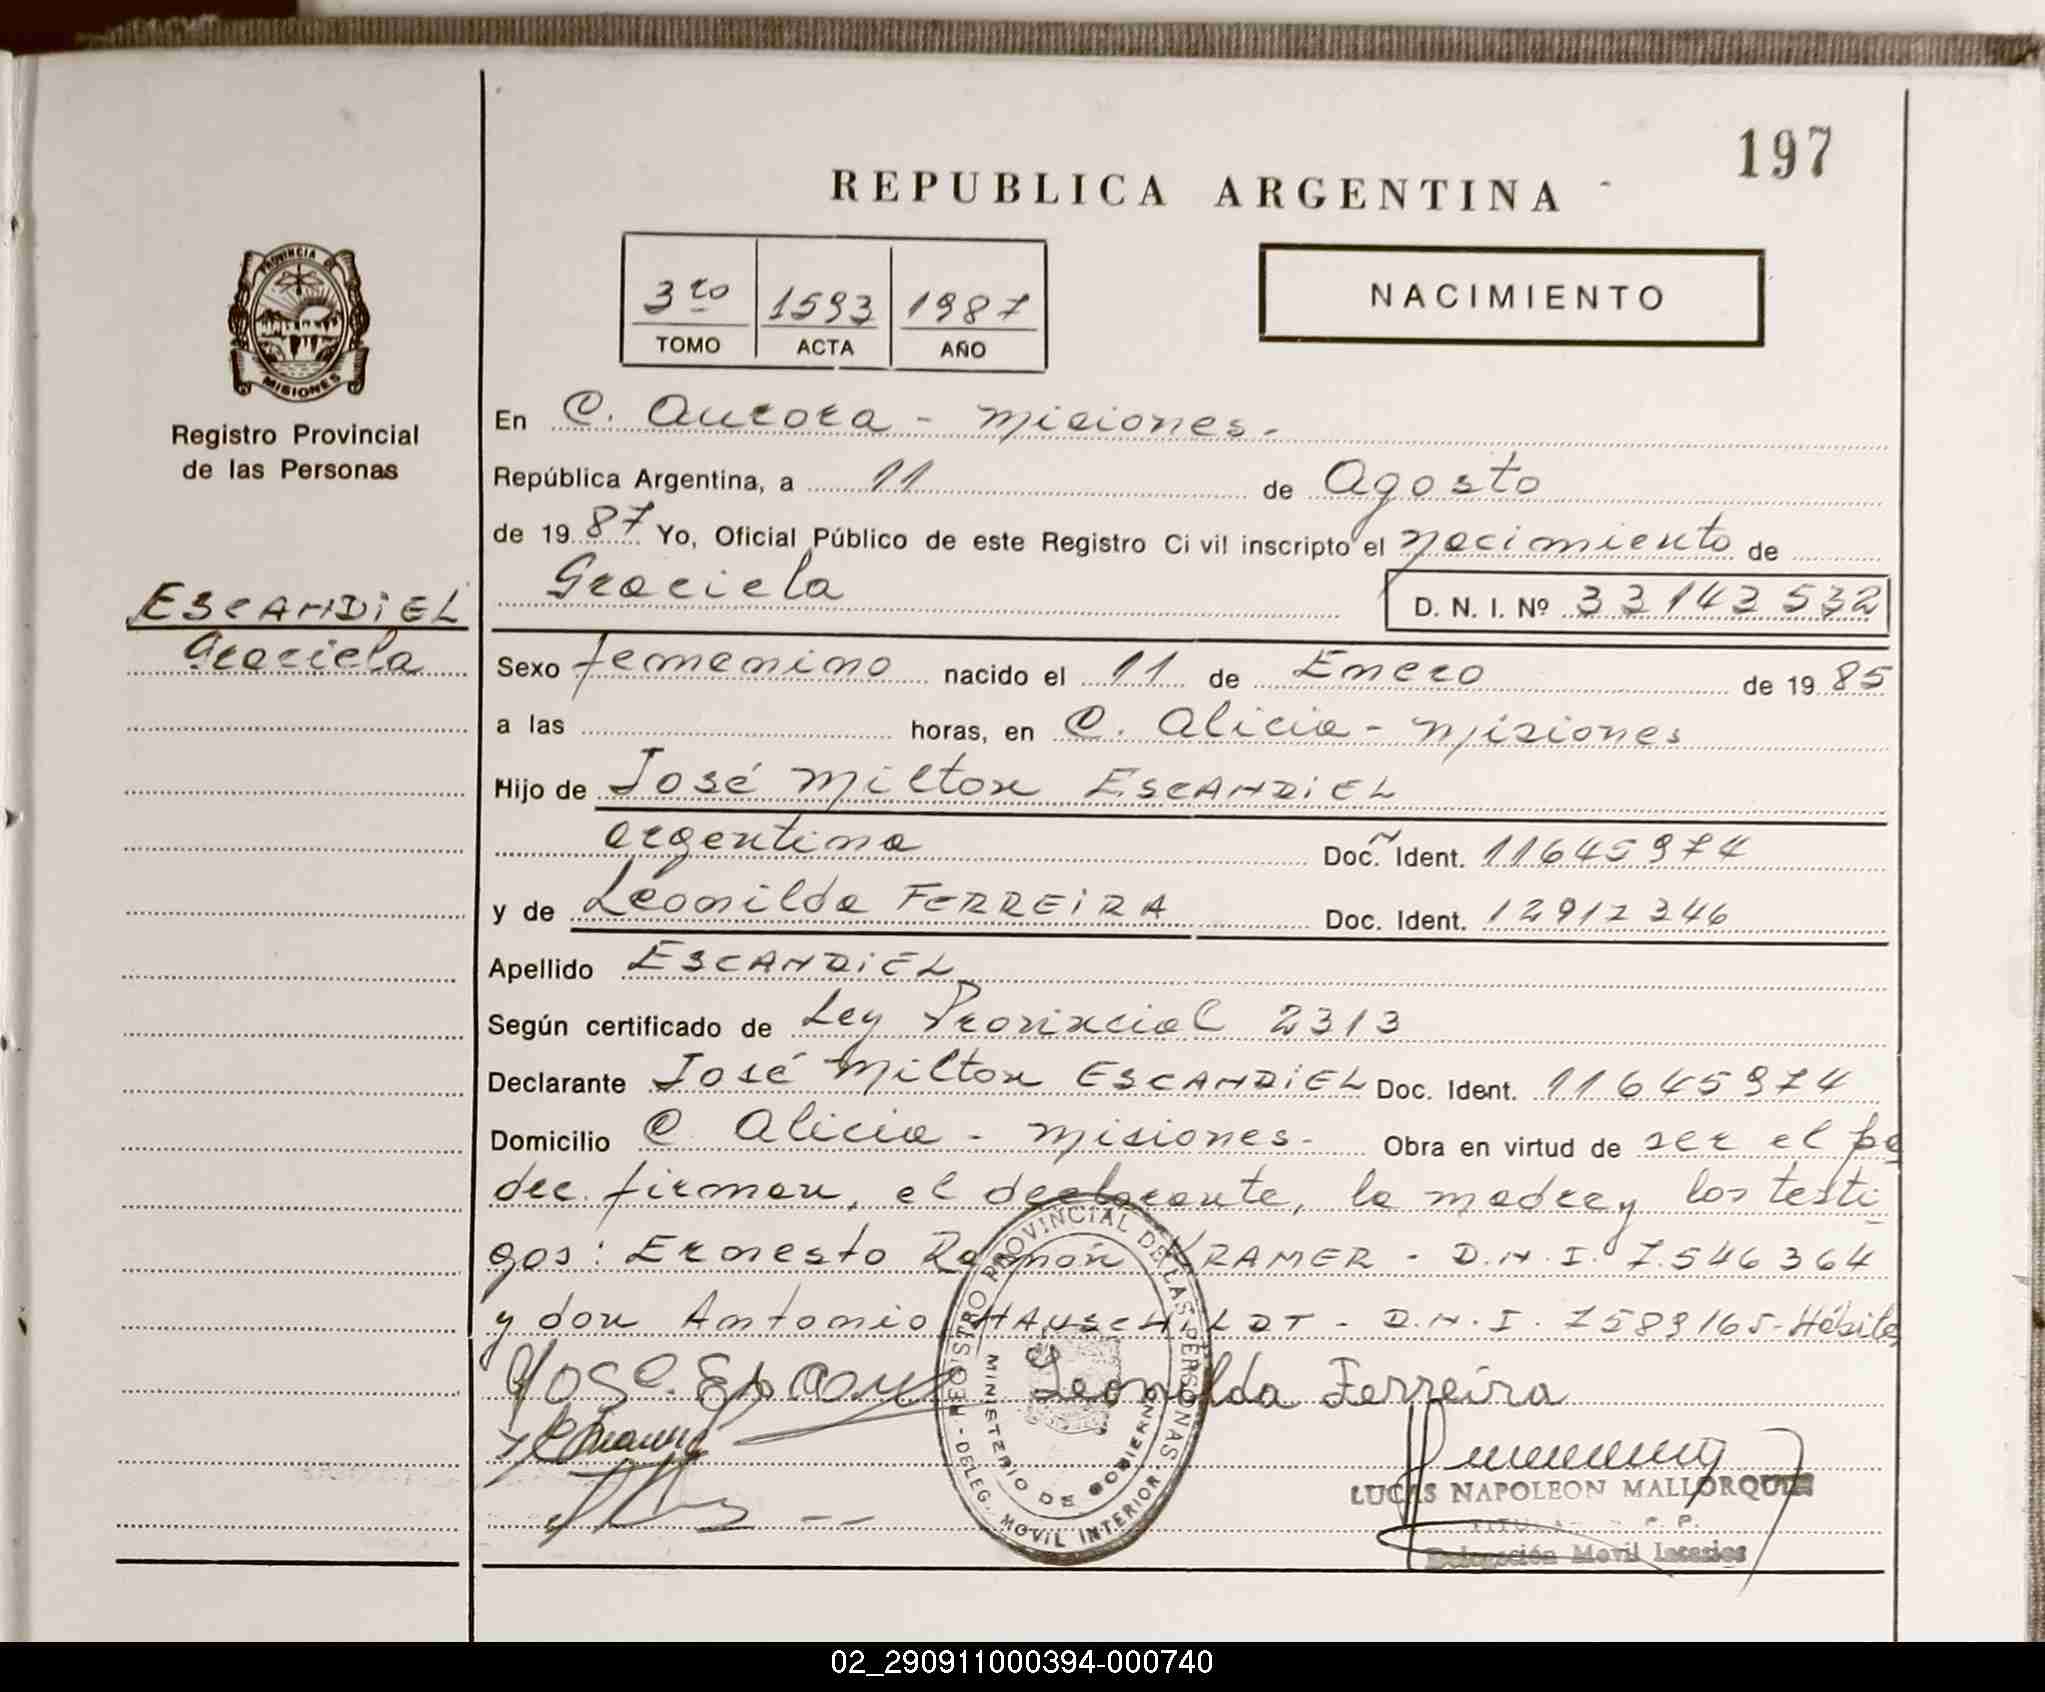 197
REPUBLICA ARGENTINA
PROVINCIA DE
MISIONES
Registro Provincial
de las Personas
3ro 1593 1987
TOMO ACTA AÑO
NACIMIENTO
En C. Aurora - Misiones.-
República Argentina, a 11 de Agosto
de 1987 Yo, Oficial Público de este Registro Civil inscripto el nacimiento de
Graciela D. N. I. Nº 33143532
ESCANDiEL
Graciela
Sexo femenino nacido el 11 de Enero de 1985
a las horas, en C. Alicia - Misiones
Hijo de José Milton ESCANDiEL
argentino Doc. Ident. 11645974
y de Leonilda FERREiRA Doc. Ident. 12912346
Apellido ESCANDiEL
Según certificado de Ley Provincial 2313
Declarante José Milton ESCANDiEL Doc. Ident. 11645974
Domicilio C. Alicia - Misiones.- Obra en virtud de ser el pa
dre. firman, el declarante, la madre y los testi-
gos: Ernesto Ramón KRAMER - D.N.I. 7.546364
y don Antonio HAUSCHiLDT - D.N.I. 7589165-Hábiles
José Leonilda Ferreira
REGISTRO PROVINCIAL DE LAS PERSONAS
MINISTERIO DE GOBIERNO
DELEG. MOVIL INTERIOR
LUCAS NAPOLEON MALLORQUIN
Delegación Movil Interior
02_290911000394-000740